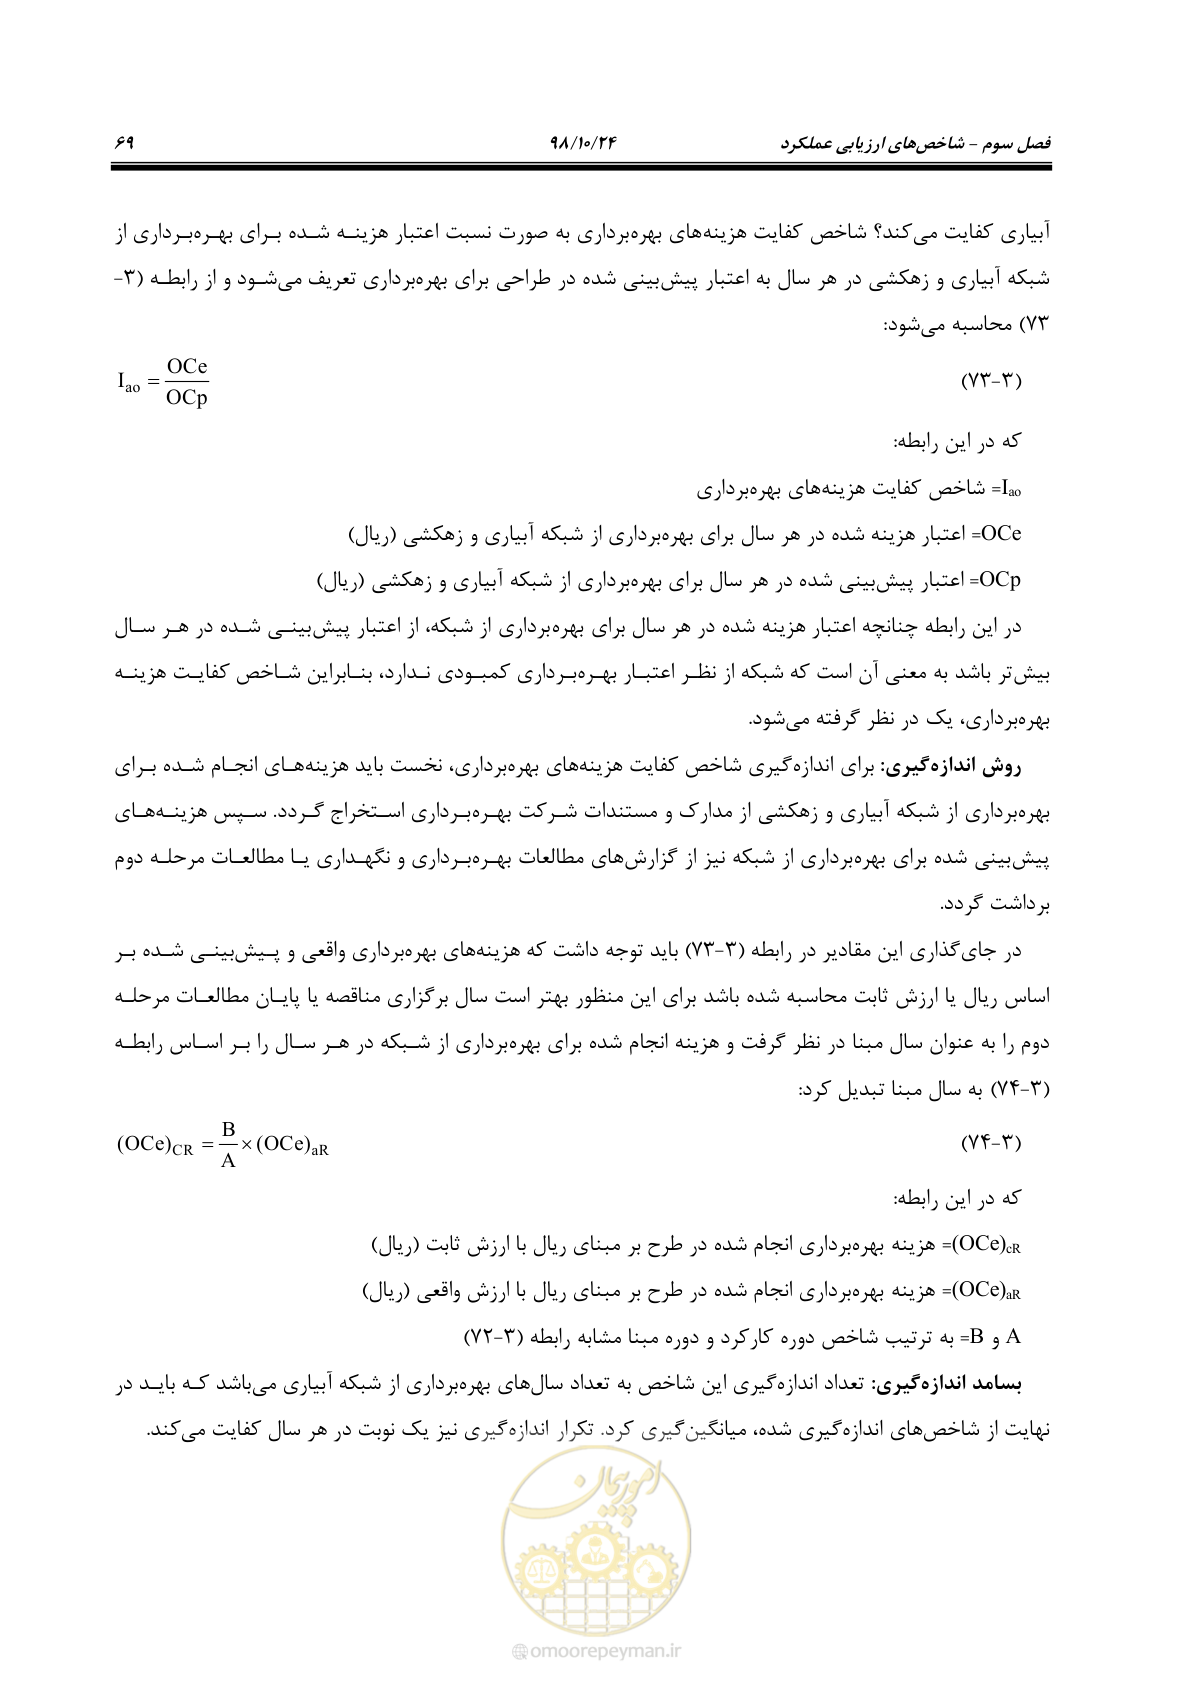 فصل سوم – شاخص‌های ارزیابی عملکرد ۹۸/۱۰/۲۴ ۶۹
آبیاری کفایت می‌کند؟ شاخص کفایت هزینه‌های بهره‌برداری به صورت نسبت اعتبار هزینه شده برای بهره‌برداری از
شبکه آبیاری و زهکشی در هر سال به اعتبار پیش‌بینی شده در طراحی برای بهره‌برداری تعریف می‌شود و از رابطه (۳-
۷۳) محاسبه می‌شود:
I_ao = OCe/OCp (۷۳-۳)
که در این رابطه:
I_ao= شاخص کفایت هزینه‌های بهره‌برداری
OCe= اعتبار هزینه شده در هر سال برای بهره‌برداری از شبکه آبیاری و زهکشی (ریال)
OCp= اعتبار پیش‌بینی شده در هر سال برای بهره‌برداری از شبکه آبیاری و زهکشی (ریال)
در این رابطه چنانچه اعتبار هزینه شده در هر سال برای بهره‌برداری از شبکه، از اعتبار پیش‌بینی شده در هر سال
بیش‌تر باشد به معنی آن است که شبکه از نظر اعتبار بهره‌برداری کمبودی ندارد، بنابراین شاخص کفایت هزینه
بهره‌برداری، یک در نظر گرفته می‌شود.
روش اندازه‌گیری: برای اندازه‌گیری شاخص کفایت هزینه‌های بهره‌برداری، نخست باید هزینه‌های انجام شده برای
بهره‌برداری از شبکه آبیاری و زهکشی از مدارک و مستندات شرکت بهره‌برداری استخراج گردد. سپس هزینه‌های
پیش‌بینی شده برای بهره‌برداری از شبکه نیز از گزارش‌های مطالعات بهره‌برداری و نگهداری یا مطالعات مرحله دوم
برداشت گردد.
در جای‌گذاری این مقادیر در رابطه (۳-۷۳) باید توجه داشت که هزینه‌های بهره‌برداری واقعی و پیش‌بینی شده بر
اساس ریال یا ارزش ثابت محاسبه شده باشد برای این منظور بهتر است سال برگزاری مناقصه یا پایان مطالعات مرحله
دوم را به عنوان سال مبنا در نظر گرفت و هزینه انجام شده برای بهره‌برداری از شبکه در هر سال را بر اساس رابطه
(۳-۷۴) به سال مبنا تبدیل کرد:
(OCe)_CR = B/A × (OCe)_aR (۷۴-۳)
که در این رابطه:
(OCe)_cR= هزینه بهره‌برداری انجام شده در طرح بر مبنای ریال با ارزش ثابت (ریال)
(OCe)_aR= هزینه بهره‌برداری انجام شده در طرح بر مبنای ریال با ارزش واقعی (ریال)
A و B= به ترتیب شاخص دوره کارکرد و دوره مبنا مشابه رابطه (۳-۷۲)
بسامد اندازه‌گیری: تعداد اندازه‌گیری این شاخص به تعداد سال‌های بهره‌برداری از شبکه آبیاری می‌باشد که باید در
نهایت از شاخص‌های اندازه‌گیری شده، میانگین‌گیری کرد. تکرار اندازه‌گیری نیز یک نوبت در هر سال کفایت می‌کند.
امور پیمان
omoorepeyman.ir